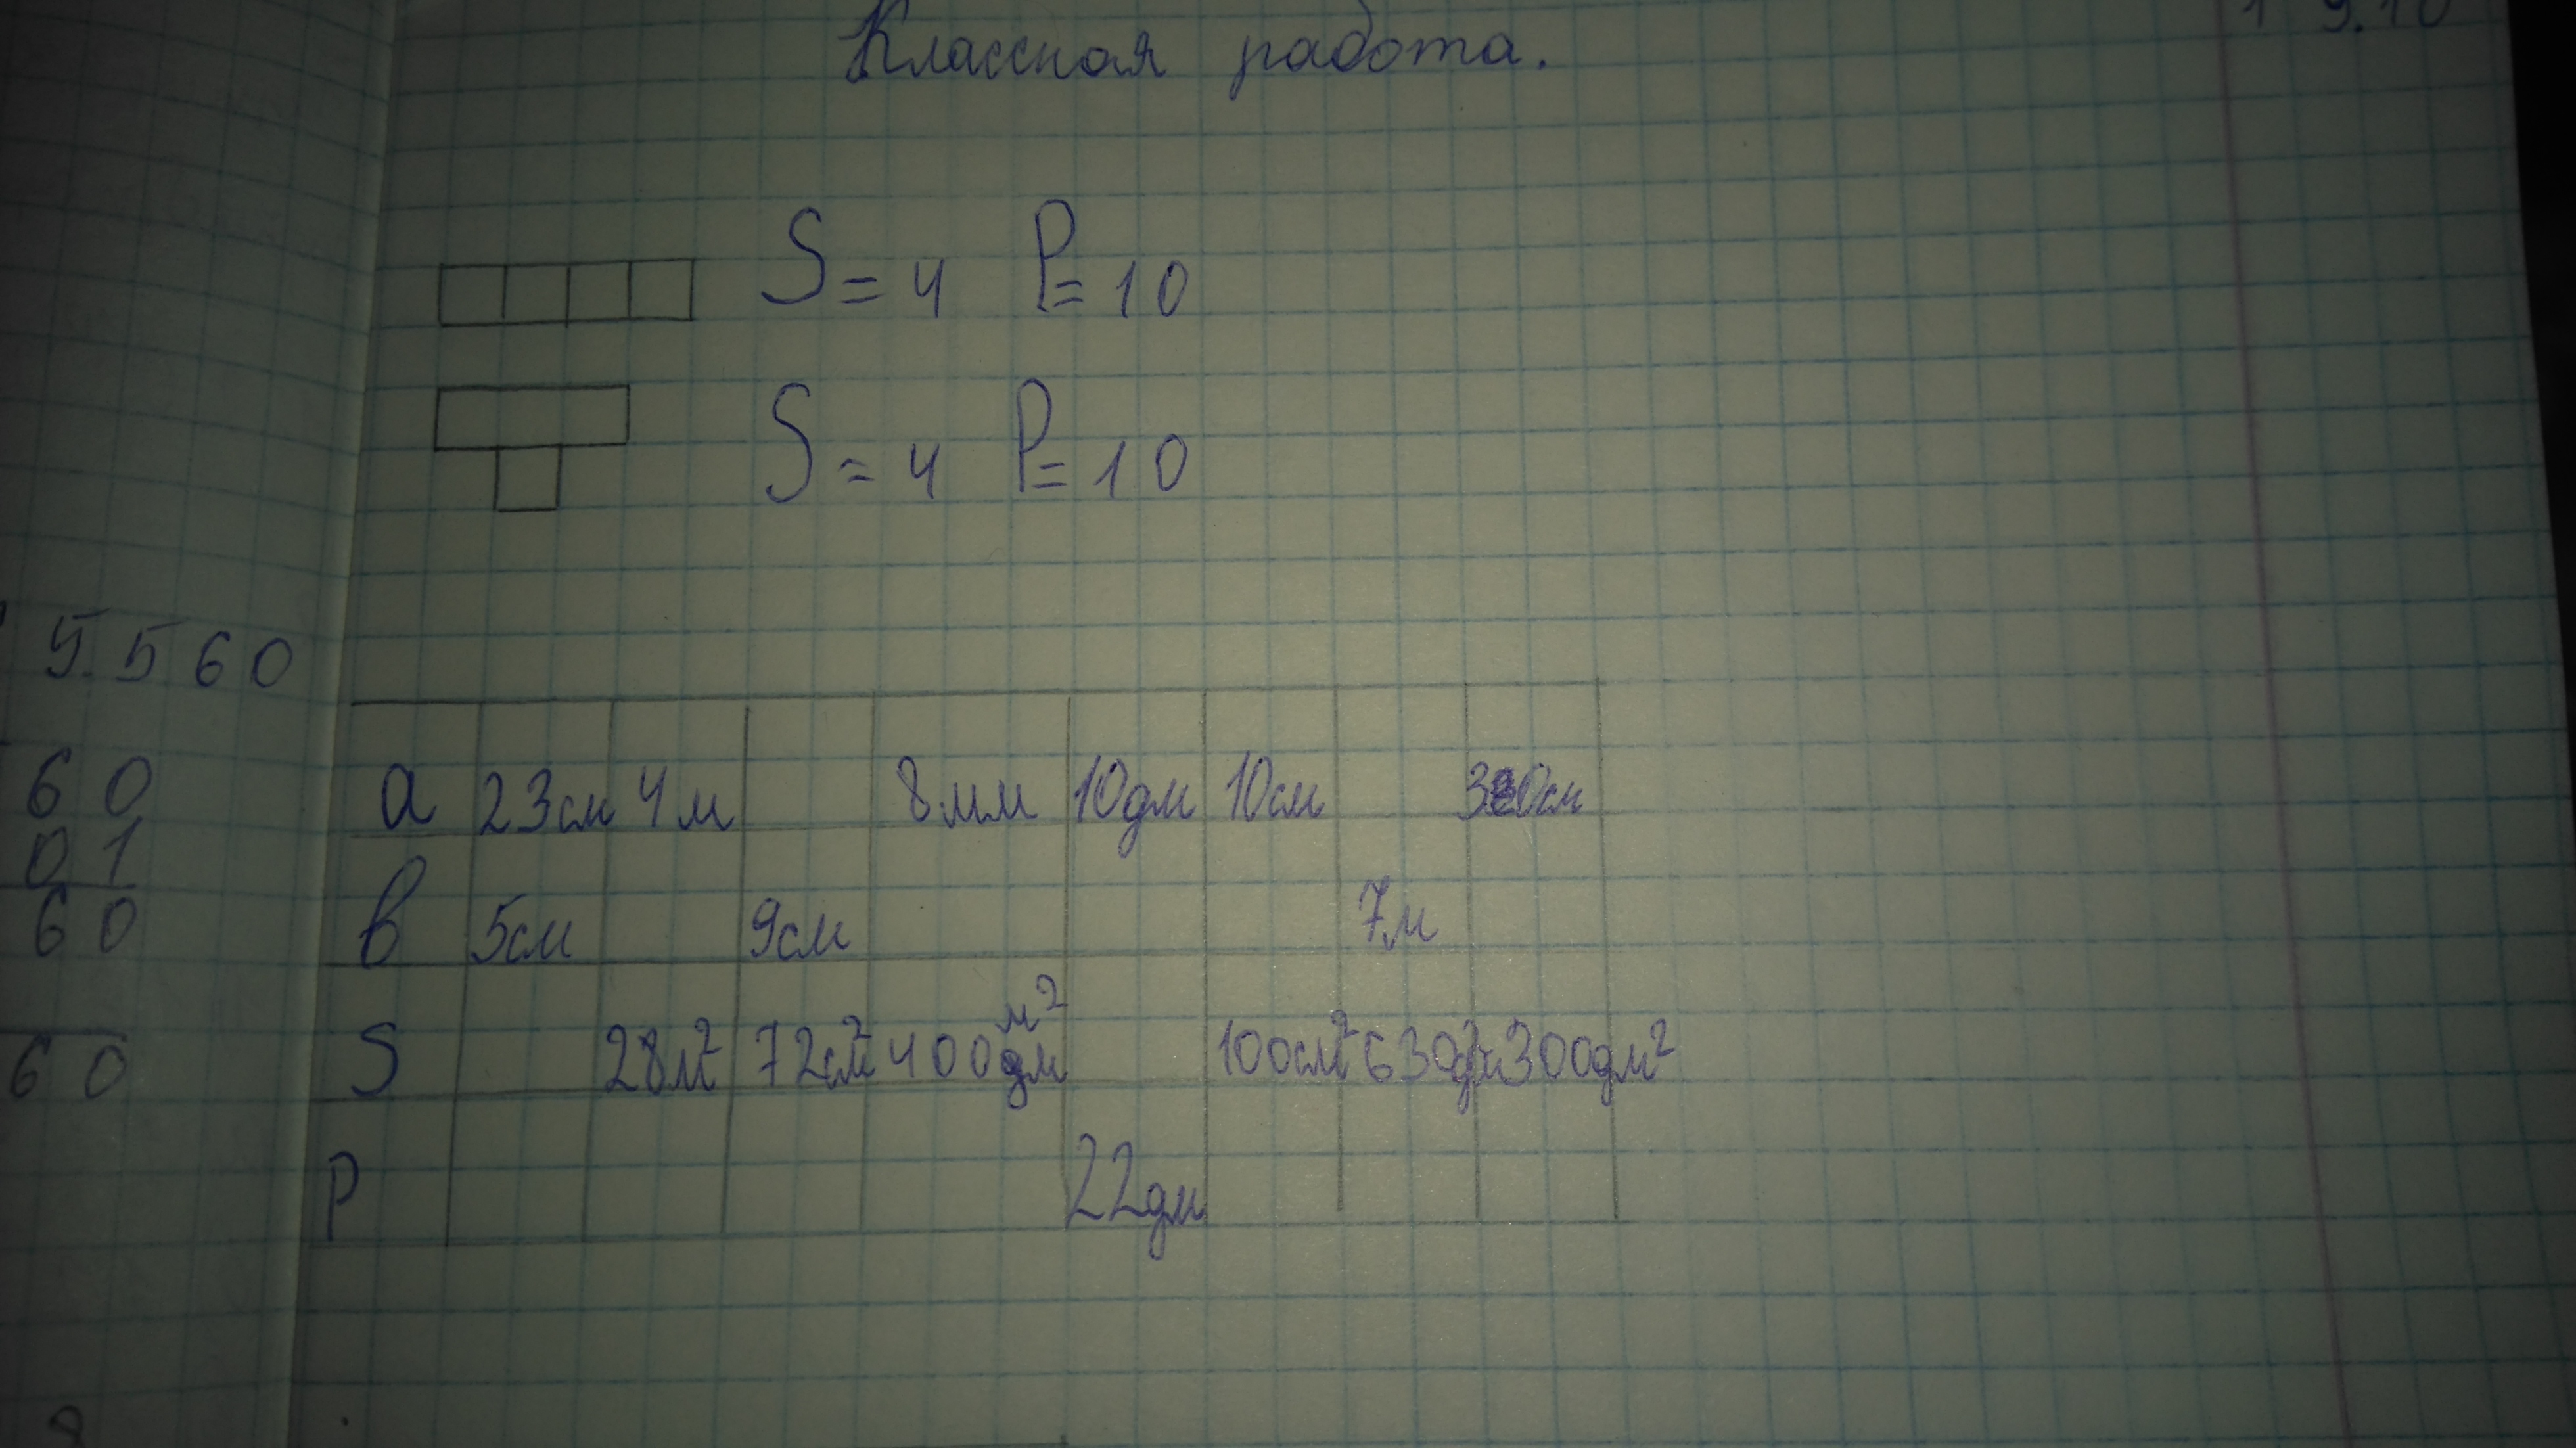 19.10
Классная работа.
S = 4 P = 10
S = 4 P = 10
5.560
60
01
60
60
8
a 23см 4м 8мм 10дм 10см см
в 5см 9см 7м
S 28м² 72см² 400 м² дм 100см² 630дм² 300дм²
P 22дм